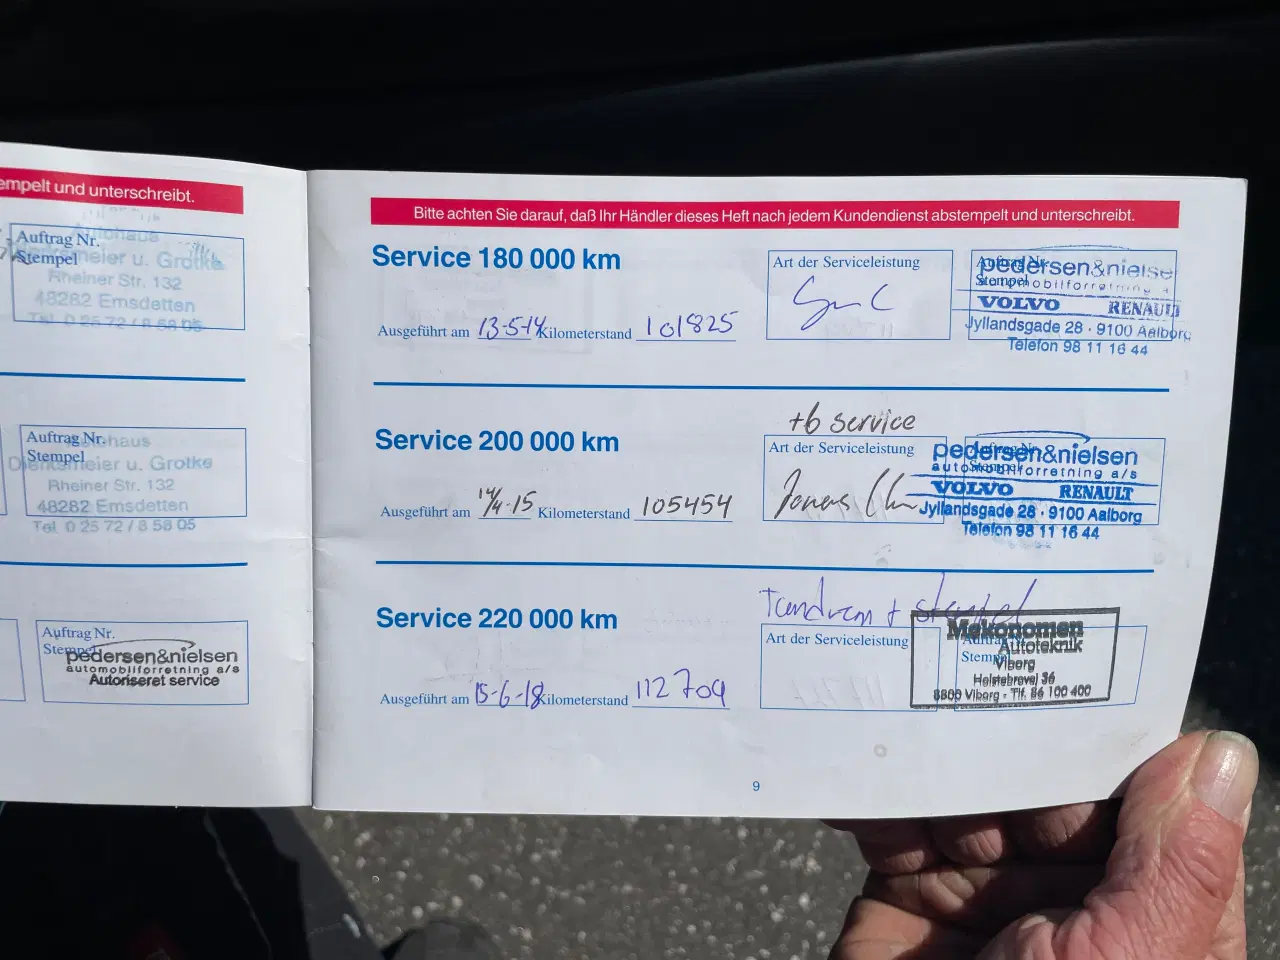 empelt und unterschreibt.
Auftrag Nr.
Stempel
Autohaus
Dierksmeier u. Grotke
Rheiner Str. 132
48282 Emsdetten
Tel. 0 25 72 / 8 58 05
Auftrag Nr.
Stempel
Autohaus
Dierksmeier u. Grotke
Rheiner Str. 132
48282 Emsdetten
Tel. 0 25 72 / 8 58 05
Auftrag Nr.
Stempel
pedersen&nielsen
automobilforretning a/s
Autoriseret service
Bitte achten Sie darauf, daß Ihr Händler dieses Heft nach jedem Kundendienst abstempelt und unterschreibt.
Service 180 000 km
Ausgeführt am 13-5-14 Kilometerstand 101825
Art der Serviceleistung
Auftrag Nr.
Stempel
pedersen&nielse
automobilforretning
VOLVO RENAULT
Jyllandsgade 28 · 9100 Aalborg
Telefon 98 11 16 44
Service 200 000 km
Ausgeführt am 14/4-15 Kilometerstand 105454
+6 service
Art der Serviceleistung
Jonas
Auftrag Nr.
Stempel
pedersen&nielsen
automobilforretning a/s
VOLVO RENAULT
Jyllandsgade 28 · 9100 Aalborg
Telefon 98 11 16 44
Service 220 000 km
Ausgeführt am 15-6-18 Kilometerstand 112709
Tandrem + stempel
Art der Serviceleistung
Auftrag Nr.
Stempel
Mekonomen
Autoteknik
Viborg
Holstebrovej 36
8800 Viborg - Tlf. 86 100 400
9